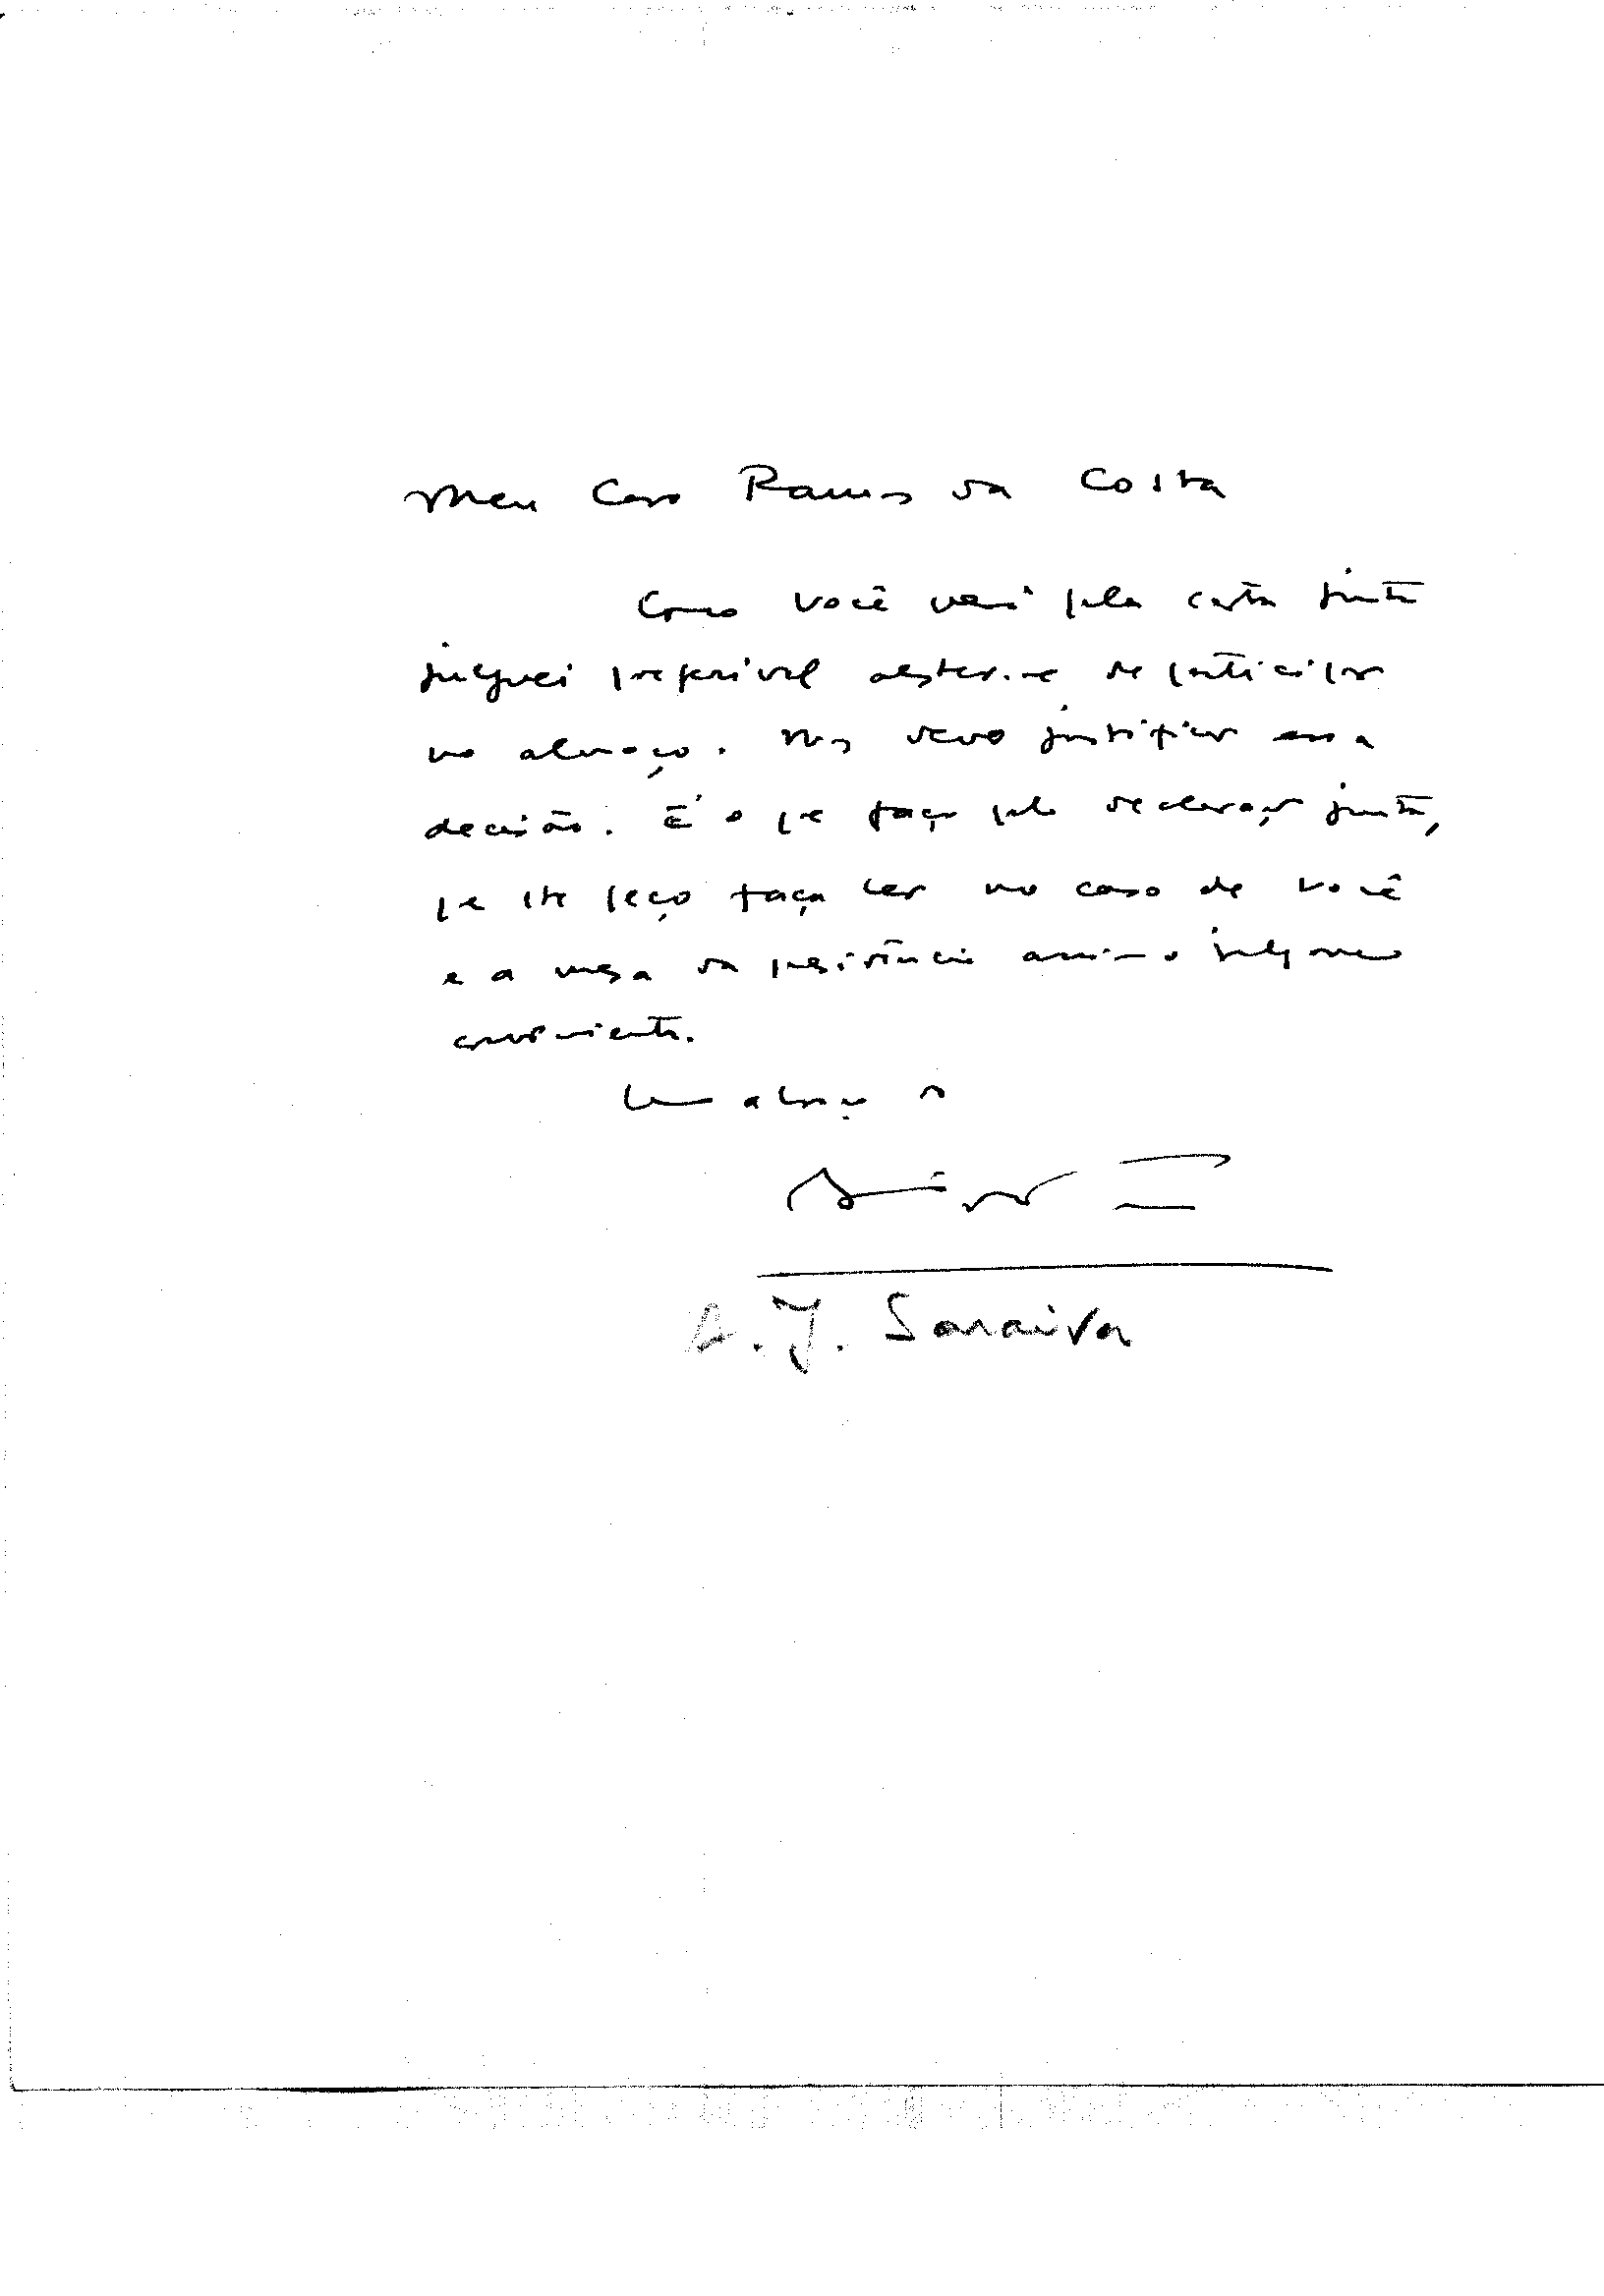 Meu Caro Ramos da Costa
Como você verá pela carta junta
julguei preferível abster-me de participar
no almoço. Mas devo justificar essa
decisão. É o que faço pela declaração junta,
que lhe peço faça ler no caso de você
e a mesa da presidência assim o julgarem
conveniente.
Um abraço do
A. J. Saraiva